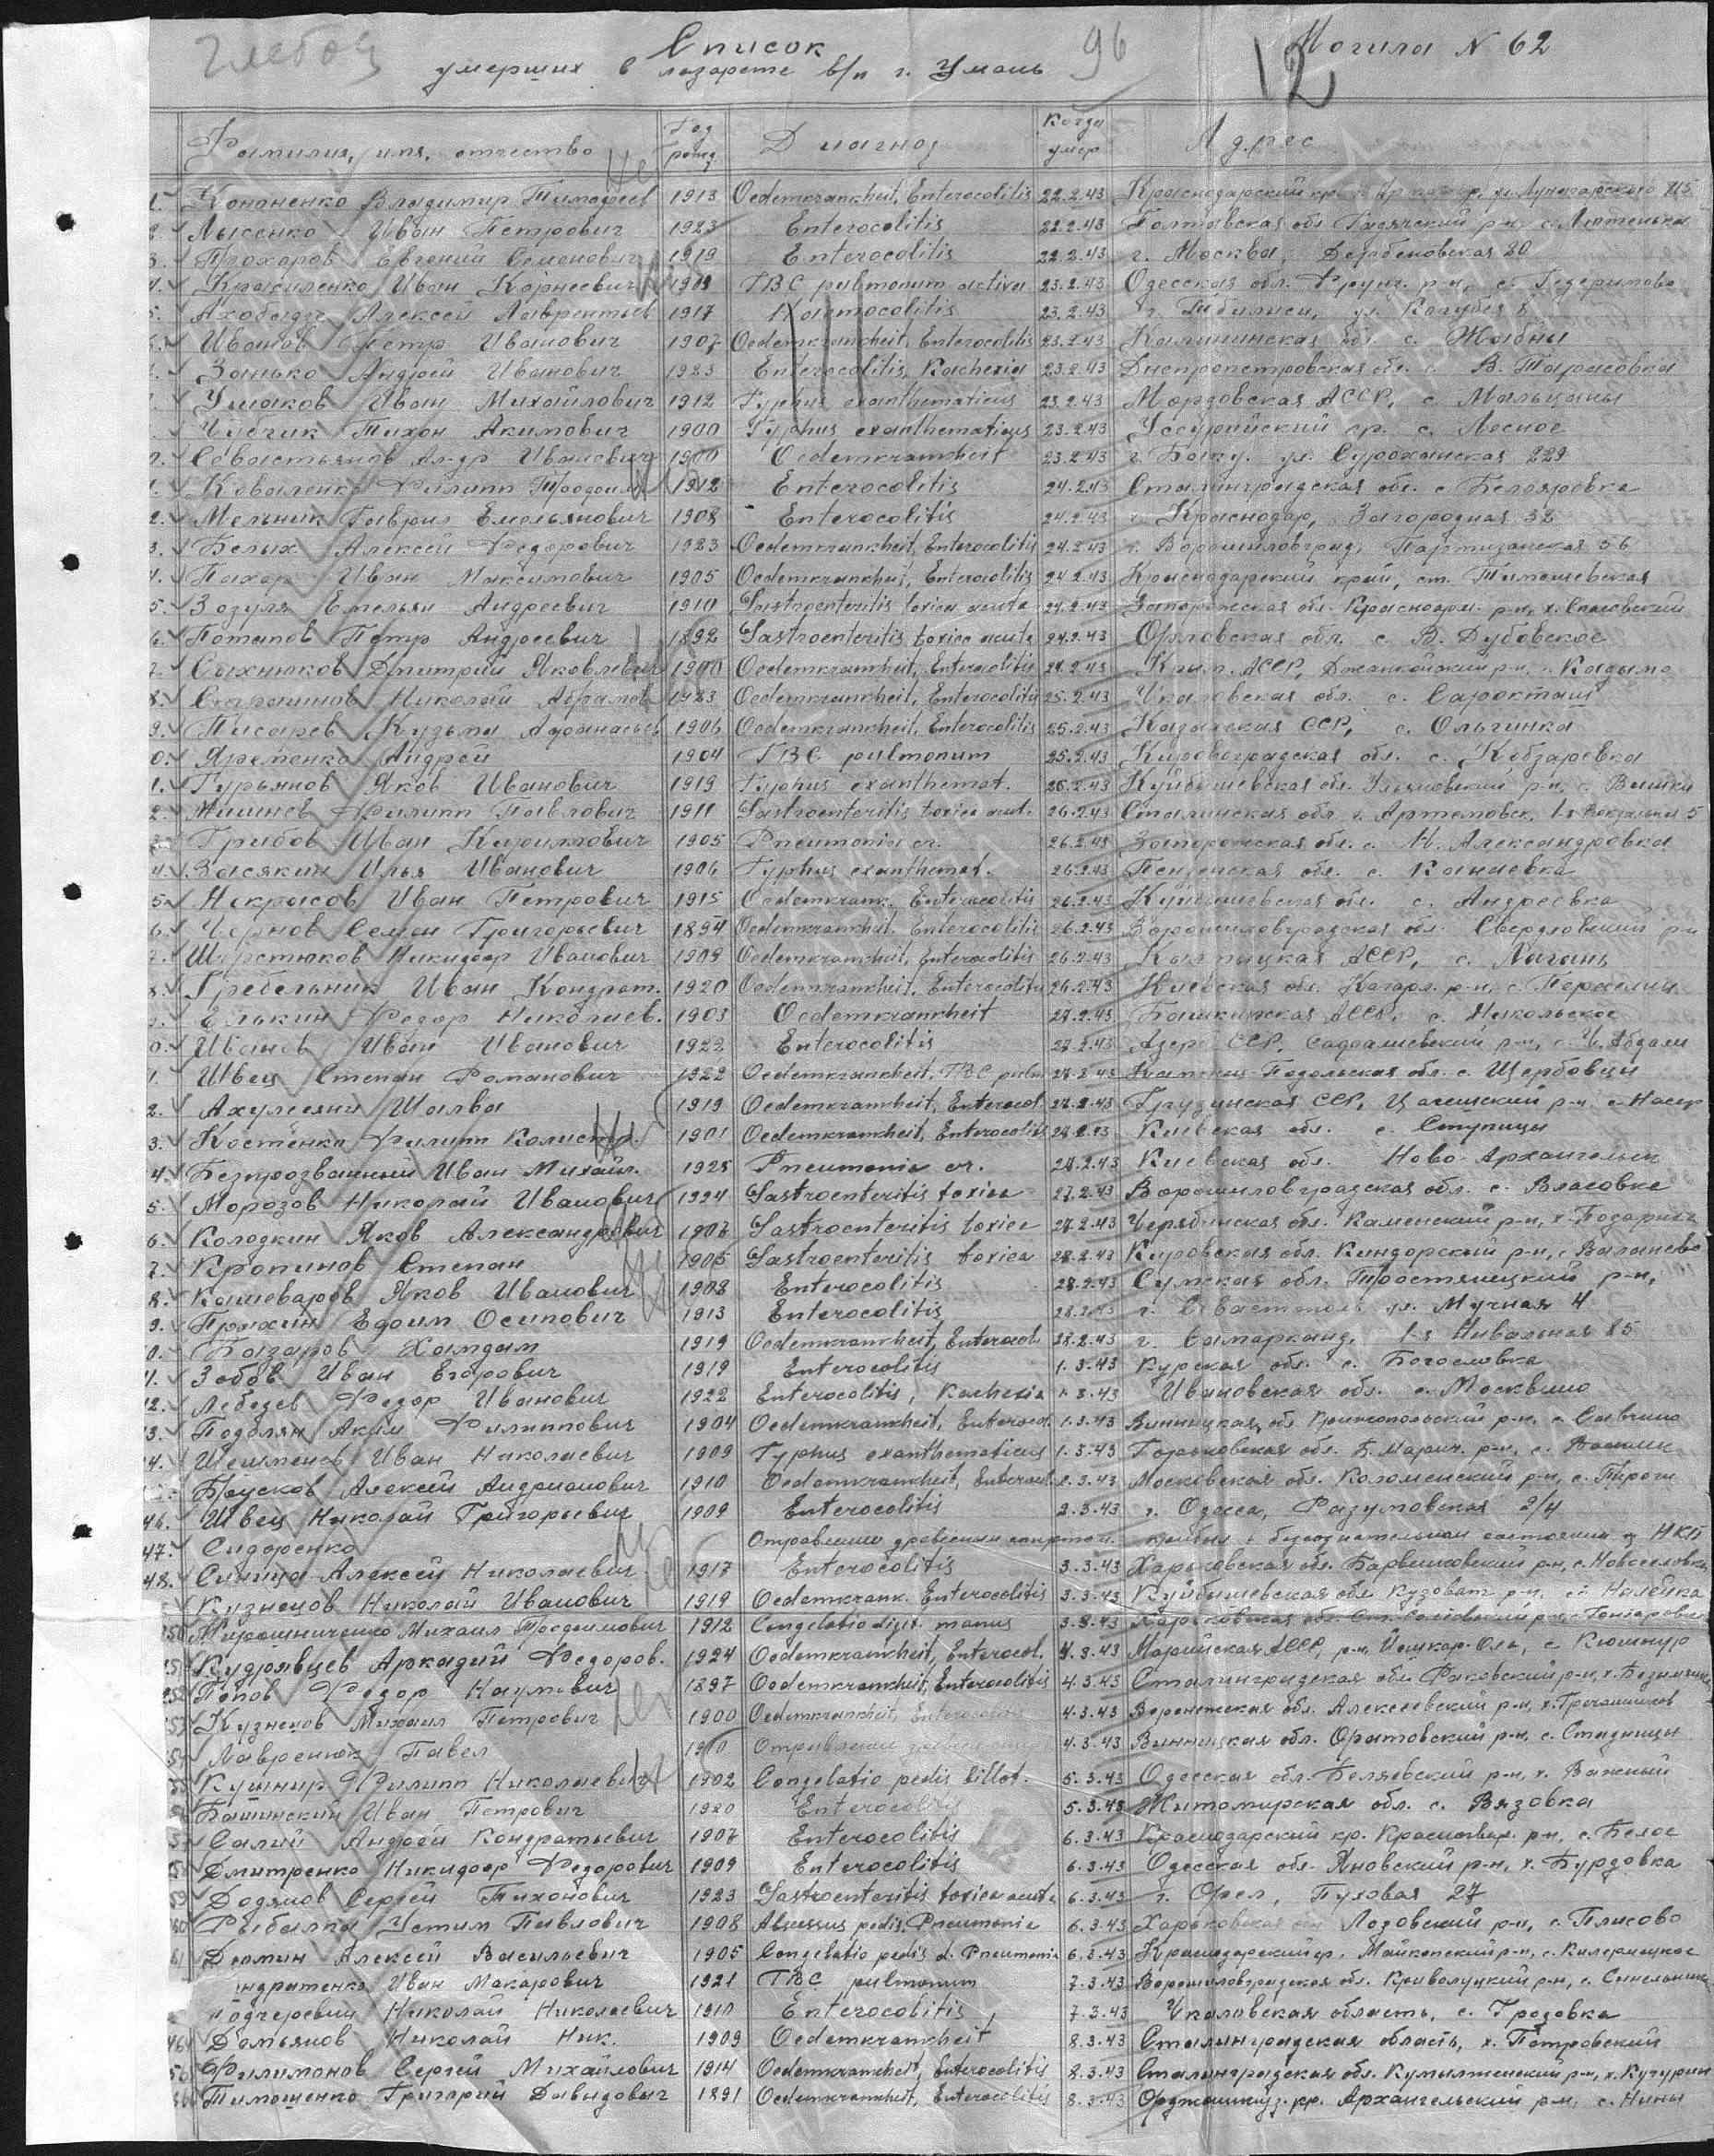 Список
умерших в лазарете в/п г. Умань
96
12
Могила N 62
Фамилия, имя, отчество Год рожд Диагноз Когда умер Адрес
Кононенко Владимир Тимофеев 1913 Oedemkrankheit, Enterocolitis 22.2.43 Краснодарский кр.
Лысенко Иван Петрович 1923 Enterocolitis 22.2.43 Полтавская обл. Гадячский р-н, с. Лютенька
Прохоров Евгений Семенович 1919 Enterocolitis 22.2.43 г. Москва, Дербеновская 20
Красиленко Иван Корнеевич 1909 TBC pulmonum activa 23.2.43 Одесская обл. Фрунз. р-н, с. Гедеримово
Ахобадзе Алексей Лаврентьев 1917 23.2.43 г. Тбилиси, ул. 8
Иванов Петр Иванович 1907 Oedemkrankheit, Enterocolitis 23.2.43 Калининская обл. с. Жабны
Занько Андрей Иванович 1923 Enterocolitis, Kachexia 23.2.43 Днепропетровская обл. с. В. Тарасовка
Ушаков Иван Михайлович 1912 Typhus exanthematicus 23.2.43 Мордовская АССР, с. Мальцаны
Чубчик Тихон Акимович 1900 Typhus exanthematicus 23.2.43 Уссурийский кр. с. Лесное
Севастьянов Ал-др Иванович 1900 Oedemkrankheit 23.2.43 г. Баку. ул. Сураханская 229
1. Коваленко Филипп Трофим 1912 Enterocolitis 24.2.43 Сталинградская обл. с. Белояровка
2. Мельник Гаврил Емельянович 1908 Enterocolitis 24.2.43 г. Краснодар, Загородная 32
3. Белых Алексей Федорович 1923 Oedemkrankheit, Enterocolitis 24.2.43 г. Ворошиловград, Партизанская 56
4. Пахар Иван Максимович 1905 Oedemkrankheit, Enterocolitis 24.2.43 Краснодарский край, ст. Тимошевская
5. Зозуля Емельян Андреевич 1910 Gastroenteritis toxica acuta 24.2.43 Запорожская обл. Красноарм. р-н, х. Спасовский
6. Потапов Петр Андреевич 1892 Gastroenteritis toxica acuta 24.2.43 Орловская обл. с. В. Дубовское
7. Сыхнюков Дмитрий Яковлевич 1900 Oedemkrankheit, Enterocolitis 24.2.43 Крым. АССР, Джанкойский р-н,
8. Николай Абрамов 1923 Oedemkrankheit, Enterocolitis 25.2.43 Чкаловская обл. с. Саракташ
9. Писарев Кузьма Афанасьев 1906 Oedemkrankheit, Enterocolitis 25.2.43 Казахская ССР, с. Ольгинка
0. Яременко Андрей 1904 TBC pulmonum 25.2.43 Кировоградская обл. с. Кобзаревка
1. Гурьянов Яков Иванович 1919 Typhus exanthemat. 26.2.43 Куйбышевская обл. Ульяновский р-н, с. Вишки
2. Филипп Павлович 1911 Gastroenteritis toxica acut. 26.2.43 Сталинская обл. г. Артемовск, 5
3. Грибов Иван 1905 Pneumonia cr. 26.2.43 Запорожская обл. с. Н. Александровка
4. Засякин Илья Иванович 1906 Typhus exanthemat. 26.2.43 Пензенская обл. с. Канаевка
5. Некрасов Иван Петрович 1915 Oedemkrank. Enterocolitis 26.2.43 Куйбышевская обл. с. Андреевка
6. Чернов Семен Григорьевич 1894 Oedemkrankheit. Enterocolitis 26.2.43 Ворошиловградская обл. Свердловский р-н
7. Шерстюков Никифор Иванович 1909 Oedemkrankheit, Enterocolitis 26.2.43 Калмыцкая АССР, с. Лагань
8. Гребельник Иван Кондрат. 1920 Oedemkrankheit. Enterocolitis 26.2.43 Киевская обл. Кагарл. р-н,
Елькин Федор Николаев. 1903 Oedemkrankheit 27.2.43 Башкирская АССР, с. Никольское
0. Иванов Иван Иванович 1922 Enterocolitis 27.2.43 Азерб ССР,
1. Швец Степан Романович 1922 Oedemkrankheit, TBC pulm 27.2.43 Каменец-Подольская обл. с. Щербовцы
2. Шалва 1919 Oedemkrankheit, Enterocol 27.2.43 Грузинская ССР,
3. Костенко Филипп Калистр. 1901 Oedemkrankheit, Enterocolitis 28.2.43 Киевская обл. с. Ступицы
4. Безпрозванный Иван Михайл. 1925 Pneumonia cr. 28.2.43 Киевская обл. Ново-Архангельск
5. Морозов Николай Иванович 1924 Gastroenteritis toxica 27.2.43 Ворошиловградская обл. с. Власовка
6. Колодкин Яков Александрович 1907 Gastroenteritis toxica 27.2.43 Челябинская обл. Каменский р-н,
7. Кропинов Степан 1905 Gastroenteritis toxica 28.2.43 Кировская обл.
8. Кашеваров Яков Иванович 1908 Enterocolitis 28.2.43 Сумская обл. Тростянецкий р-н,
9. Пряхин Ефим Осипович 1913 Enterocolitis 28.2.43 г. Севастополь ул. Мучная 4
0. Базаров Хамдам 1919 Oedemkrankheit, Enterocol 28.2.43 г. Самарканд, 85
1. Зобов Иван Егорович 1919 Enterocolitis 1.3.43 Курская обл. с. Богословка
2. Лебедев Федор Иванович 1922 Enterocolitis, Kachexia 1.3.43 Ивановская обл. с. Москвино
3. Подолян Аким Филиппович 1904 Oedemkrankheit, Enterocol. 1.3.43 Винницкая обл. р-н, с. Савчино
4. Шешменев Иван Николаевич 1909 Typhus exanthematicus 1.3.43 Горьковская обл. р-н, с.
Брусков Алексей Андрианович 1910 Oedemkrankheit, Enterocol. 2.3.43 Московская обл. Коломенский р-н, с. Пироги
46. Швец Николай Григорьевич 1909 Enterocolitis 2.3.43 г. Одесса, Разумовская 2/4
47. Сидоренко Отравление древесным спиртом. в безсознательном состоянии НКП
48. Синица Алексей Николаевич 1917 Enterocolitis 3.3.43 Харьковская обл. Барвенковский р-н, с. Новоселовка
Кузнецов Николай Иванович 1919 Oedemkrank. Enterocolitis 3.3.43 Куйбышевская обл. Кузоват р-н, с.
Мирошниченко Михаил Трофимович 1912 Congelatio digit. manus 3.3.43 Харьковская обл.
Кудрявцев Аркадий Федоров. 1924 Oedemkrankheit, Enterocol. 4.3.43 Марийская АССР, р-н, Йошкар-Ола, с. Кюшнур
Попов Федор Наумович 1897 Oedemkrankheit, Enterocolitis 4.3.43 Сталинградская обл. Фроловский р-н,
Кузнецов Михаил Петрович 1900 Oedemkrankheit, Enterocolitis 4.3.43 Воронежская обл. Алексеевский р-н,
Лавренюк Павел 1910 Отравление 4.3.43 Винницкая обл. Оратовский р-н, с. Стадницы
Кушнир Филипп Николаевич 1902 Congelatio pedis billat. 5.3.43 Одесская обл. Беляевский р-н, х. Важный
Башинский Иван Петрович 1920 Enterocolitis 5.3.43 Житомирская обл. с. Вязовка
Салий Андрей Кондратьевич 1907 Enterocolitis 6.3.43 Краснодарский кр. р-н, с. Белое
Дмитренко Никифор Федорович 1909 Enterocolitis 6.3.43 Одесская обл. Яновский р-н, х. Бурдовка
59 Додянов Сергей Тихонович 1923 Gastroenteritis toxica acuta 6.3.43 г. Орел, Пуховая 27
60 Рыбалка Устим Павлович 1908 Abscessus pedis. Pneumonia 6.3.43 Харьковская обл. Лозовский р-н, с. Плисово
61 Демин Алексей Васильевич 1905 Congelatio pedis d. Pneumonia 6.3.43 Краснодарский кр. Майкопский р-н,
ндратенко Иван Макарович 1921 TBC pulmonum 7.3.43 Ворошиловградская обл. р-н,
одчеревин Николай Николаевич 1910 Enterocolitis 7.3.43 Чкаловская область, с. Грозовка
Демьянов Николай Ник. 1909 Oedemkrankheit 8.3.43 Сталинградская область, х. Петровский
Филимонов Сергей Михайлович 1914 Oedemkrankheit, Enterocolitis 8.3.43 Сталинградская обл. Кумылженский р-н,
Тимошенко Григорий Давыдович 1891 Oedemkrankheit, Enterocolitis 8.3.43 Орджоникидз. кр. Архангельский р-н, с. Нины